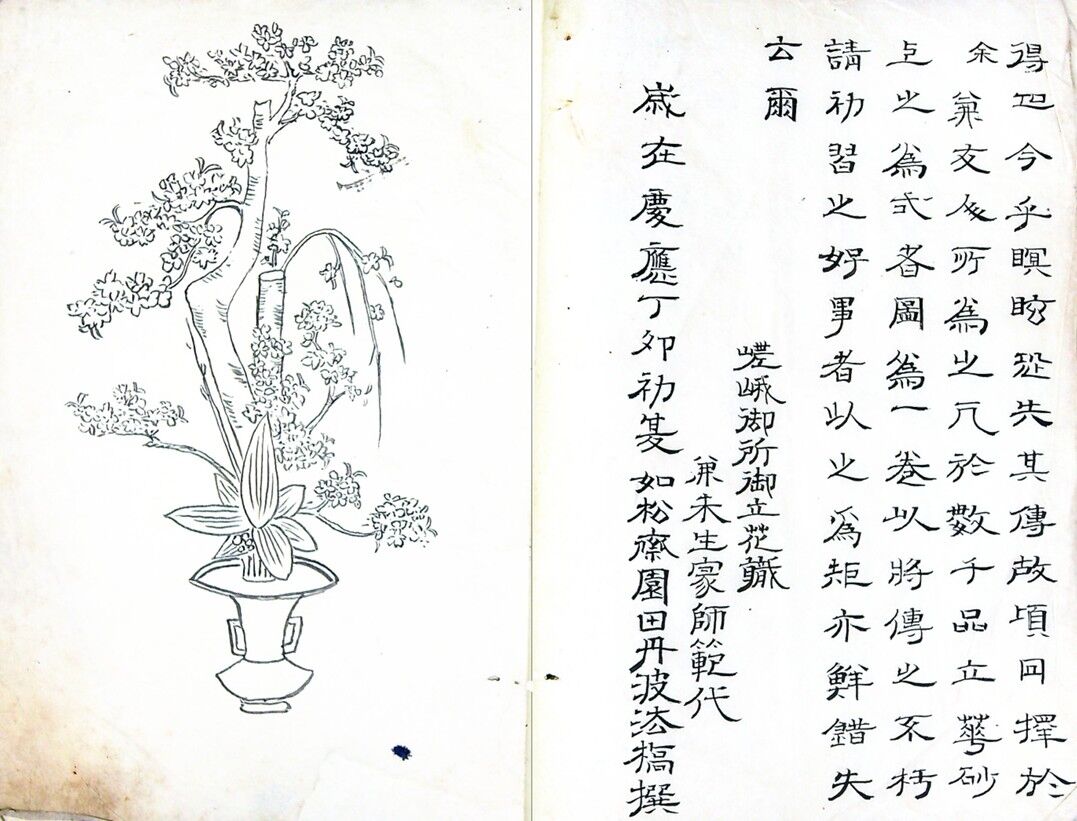 得今乎瞑眩恐失其傳故頃日擇於
余兼友所爲之凡於數千品立華砂
上之爲式者圖爲一卷以將傳之不朽
請初習之好事者以之爲矩亦鮮錯失
云爾
嵯峨御所御立花職
兼未生家師範代
歳在慶應丁卯初夏如松齋園田丹波法橋撰